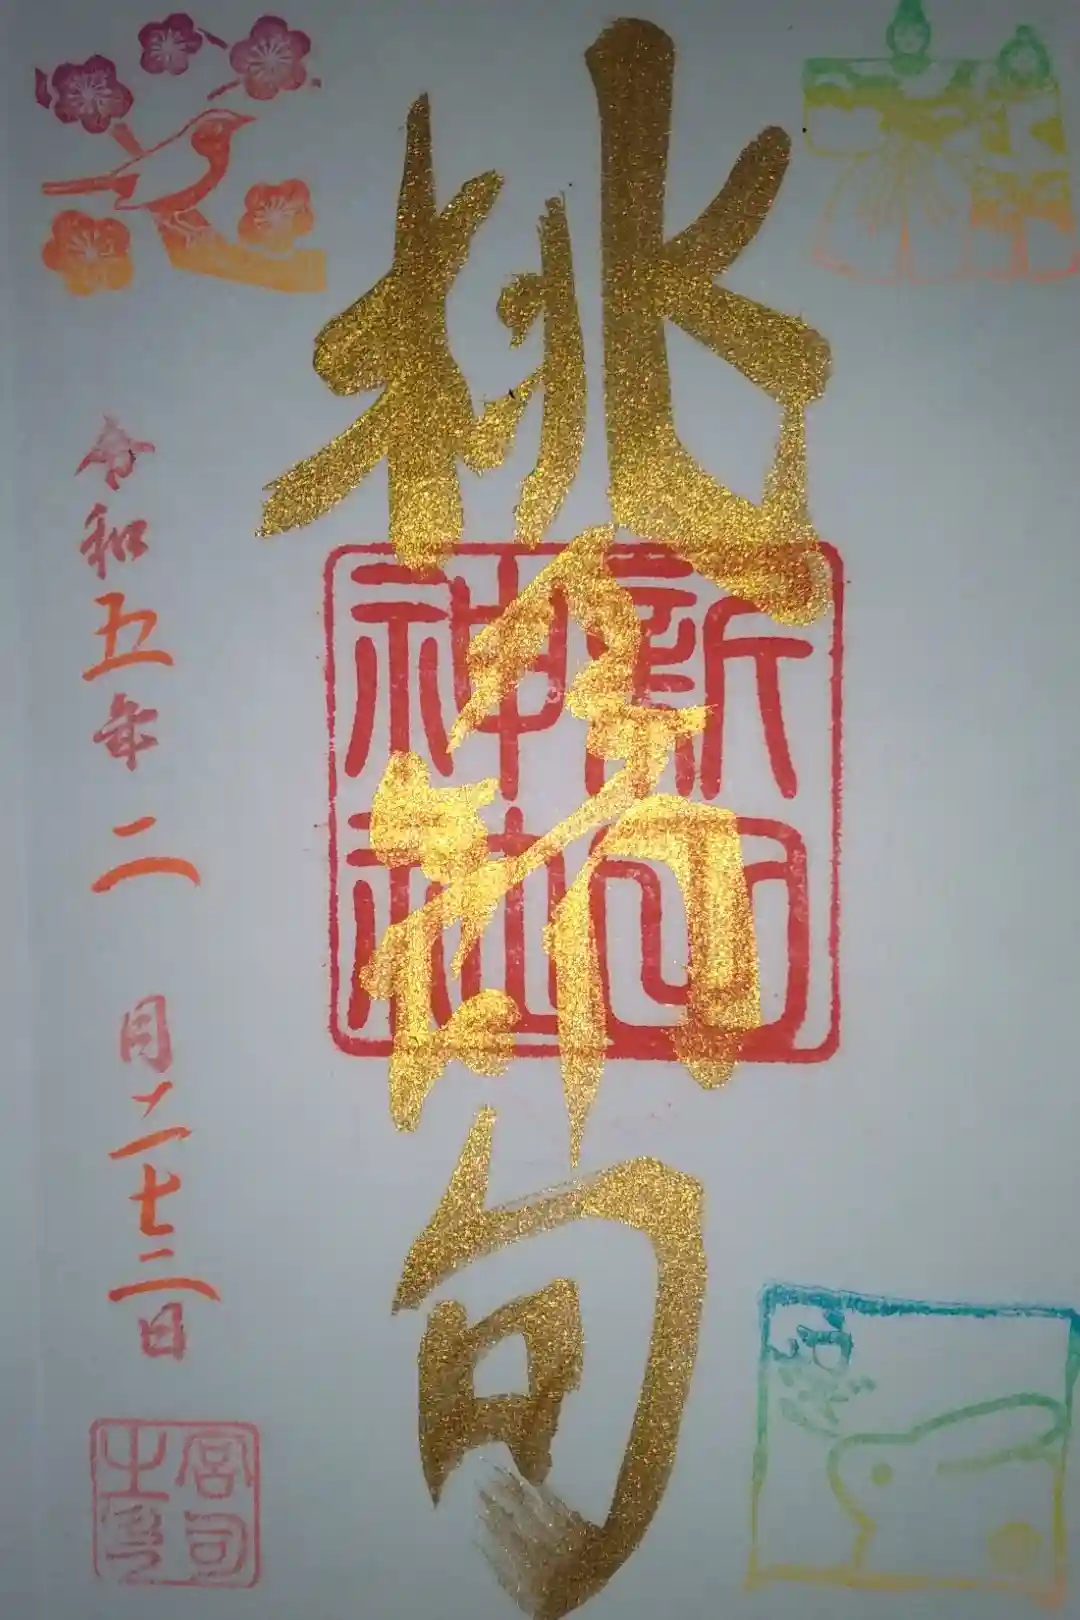 桃節句
神社
令和五年二月二十二日
宮司之印